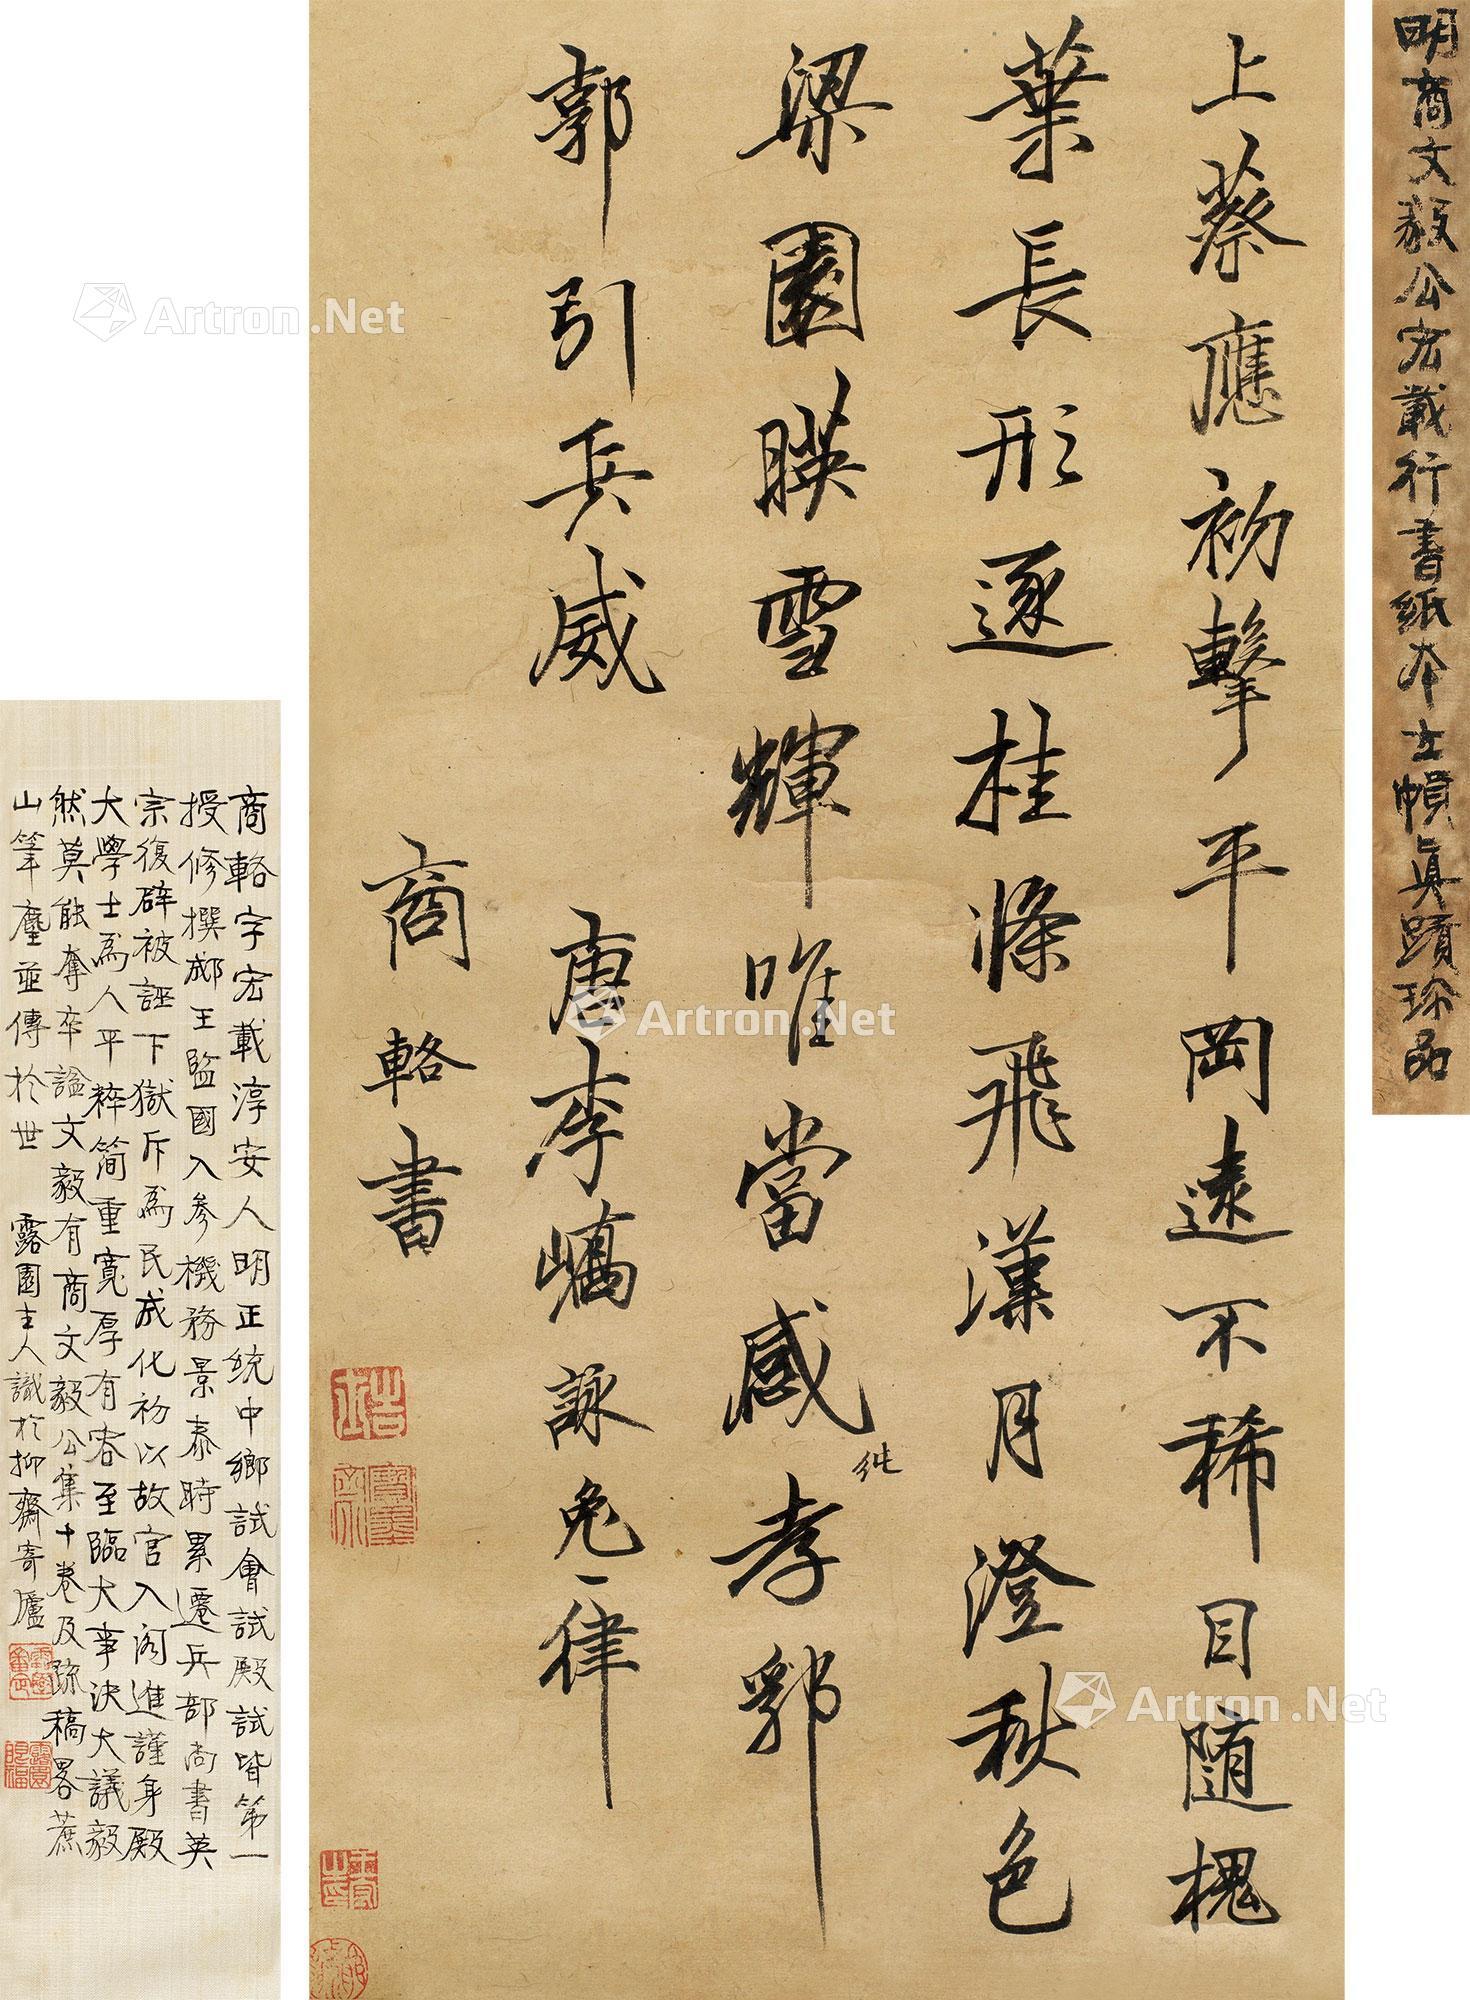 明商文毅公宏載行書紙本立幀真蹟珍品
上蔡應初擊平岡遠不稀目隨槐
葉長形逐桂條飛漢月澄秋色
梁園暎雪輝唯當感孝郭
純
郭引兵威
唐李嶠詠兔一律
商輅書
商輅字宏載淳安人明正统中鄉試會試殿試皆第一
授修撰郕王監國入參機務景泰時累遷兵部尚書英
宗復辟被誣下獄斥為民成化初以故官入阁進謹身殿
大學士為人平粹简重寬厚有容至臨大事決大議毅
然莫能奪卒謚文毅有商文毅公集十卷及疏稿畧蔗
山筆麈並傳於世 露園主人識於抑齋寄廬
Artron.Net
Artron.Net
Artron.Net